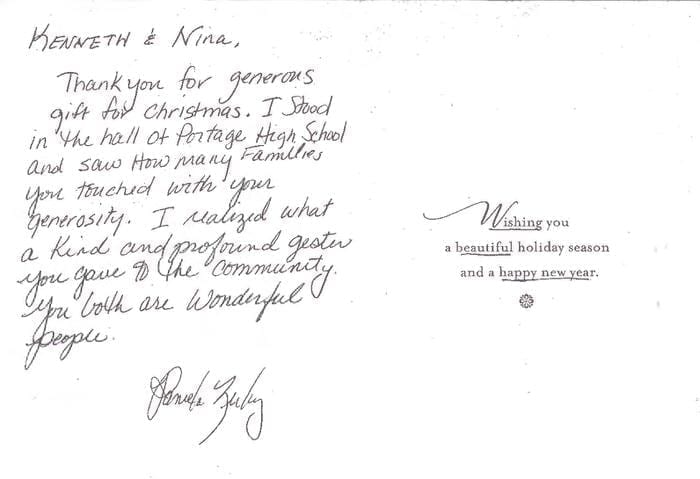 Kenneth & Nina,
Thank you for generous
gift for Christmas. I stood
in the hall of Portage High School
and saw How many Families
you touched with your
generosity. I realized what
a kind and profound gester
you gave to the community.
You both are wonderful
people.
Wishing you
a beautiful holiday season
and a happy new year.